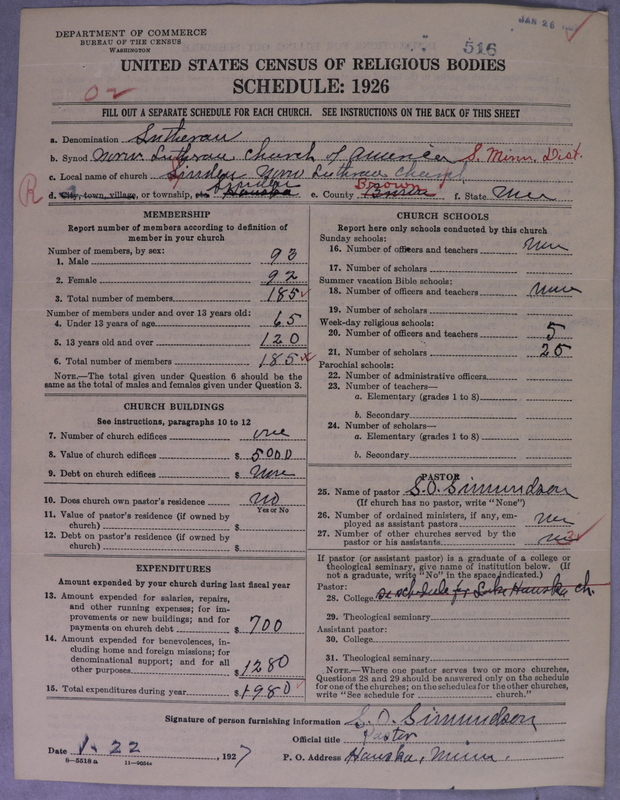 JAN 26
DEPARTMENT OF COMMERCE
BUREAU OF THE CENSUS
WASHINGTON
516
UNITED STATES CENSUS OF RELIGIOUS BODIES
SCHEDULE: 1926
02
FILL OUT A SEPARATE SCHEDULE FOR EACH CHURCH. SEE INSTRUCTIONS ON THE BACK OF THIS SHEET
a. Denomination Lutheran
b. Synod Norw. Lutheran Church of America S. Minn. Dist.
c. Local name of church Linden Norw Lutheran Church
R d. City, town, village, or township, Linden Hanska e. County Brown f. State Minn
MEMBERSHIP
Report number of members according to definition of
member in your church
Number of members, by sex:
1. Male 93
2. Female 92
3. Total number of members 185
Number of members under and over 13 years old:
4. Under 13 years of age 65
5. 13 years old and over 120
6. Total number of members 185
NOTE.—The total given under Question 6 should be the
same as the total of males and females given under Question 3.
CHURCH BUILDINGS
See instructions, paragraphs 10 to 12
7. Number of church edifices one
8. Value of church edifices $ 5000
9. Debt on church edifices $ None
10. Does church own pastor's residence no
Yes or No
11. Value of pastor's residence (if owned by
church) $
12. Debt on pastor's residence (if owned by
church) $
EXPENDITURES
Amount expended by your church during last fiscal year
13. Amount expended for salaries, repairs,
and other running expenses; for im-
provements or new buildings; and for
payments on church debt $ 700
14. Amount expended for benevolences, in-
cluding home and foreign missions; for
denominational support; and for all
other purposes $ 1280
15. Total expenditures during year $ 1980
CHURCH SCHOOLS
Report here only schools conducted by this church
Sunday schools:
16. Number of officers and teachers none
17. Number of scholars
Summer vacation Bible schools:
18. Number of officers and teachers none
19. Number of scholars
Week-day religious schools:
20. Number of officers and teachers 5
21. Number of scholars 25
Parochial schools:
22. Number of administrative officers
23. Number of teachers—
a. Elementary (grades 1 to 8)
b. Secondary
24. Number of scholars—
a. Elementary (grades 1 to 8)
b. Secondary
PASTOR
25. Name of pastor S.O. Simundson
(If church has no pastor, write "None")
26. Number of ordained ministers, if any, em-
ployed as assistant pastors none
27. Number of other churches served by the
pastor or his assistants
If pastor (or assistant pastor) is a graduate of a college or
theological seminary, give name of institution below. (If
not a graduate, write "No" in the space indicated.)
Pastor:
28. College se schedule for Lake Hanska ch.
29. Theological seminary
Assistant pastor:
30. College
31. Theological seminary
NOTE.—Where one pastor serves two or more churches,
Questions 28 and 29 should be answered only on the schedule
for one of the churches; on the schedules for the other churches,
write "See schedule for church."
Signature of person furnishing information S. O. Simundson
Official title Pastor
Date 1. 22, 1927 P. O. Address Hanska, Minn.
8-5518 a